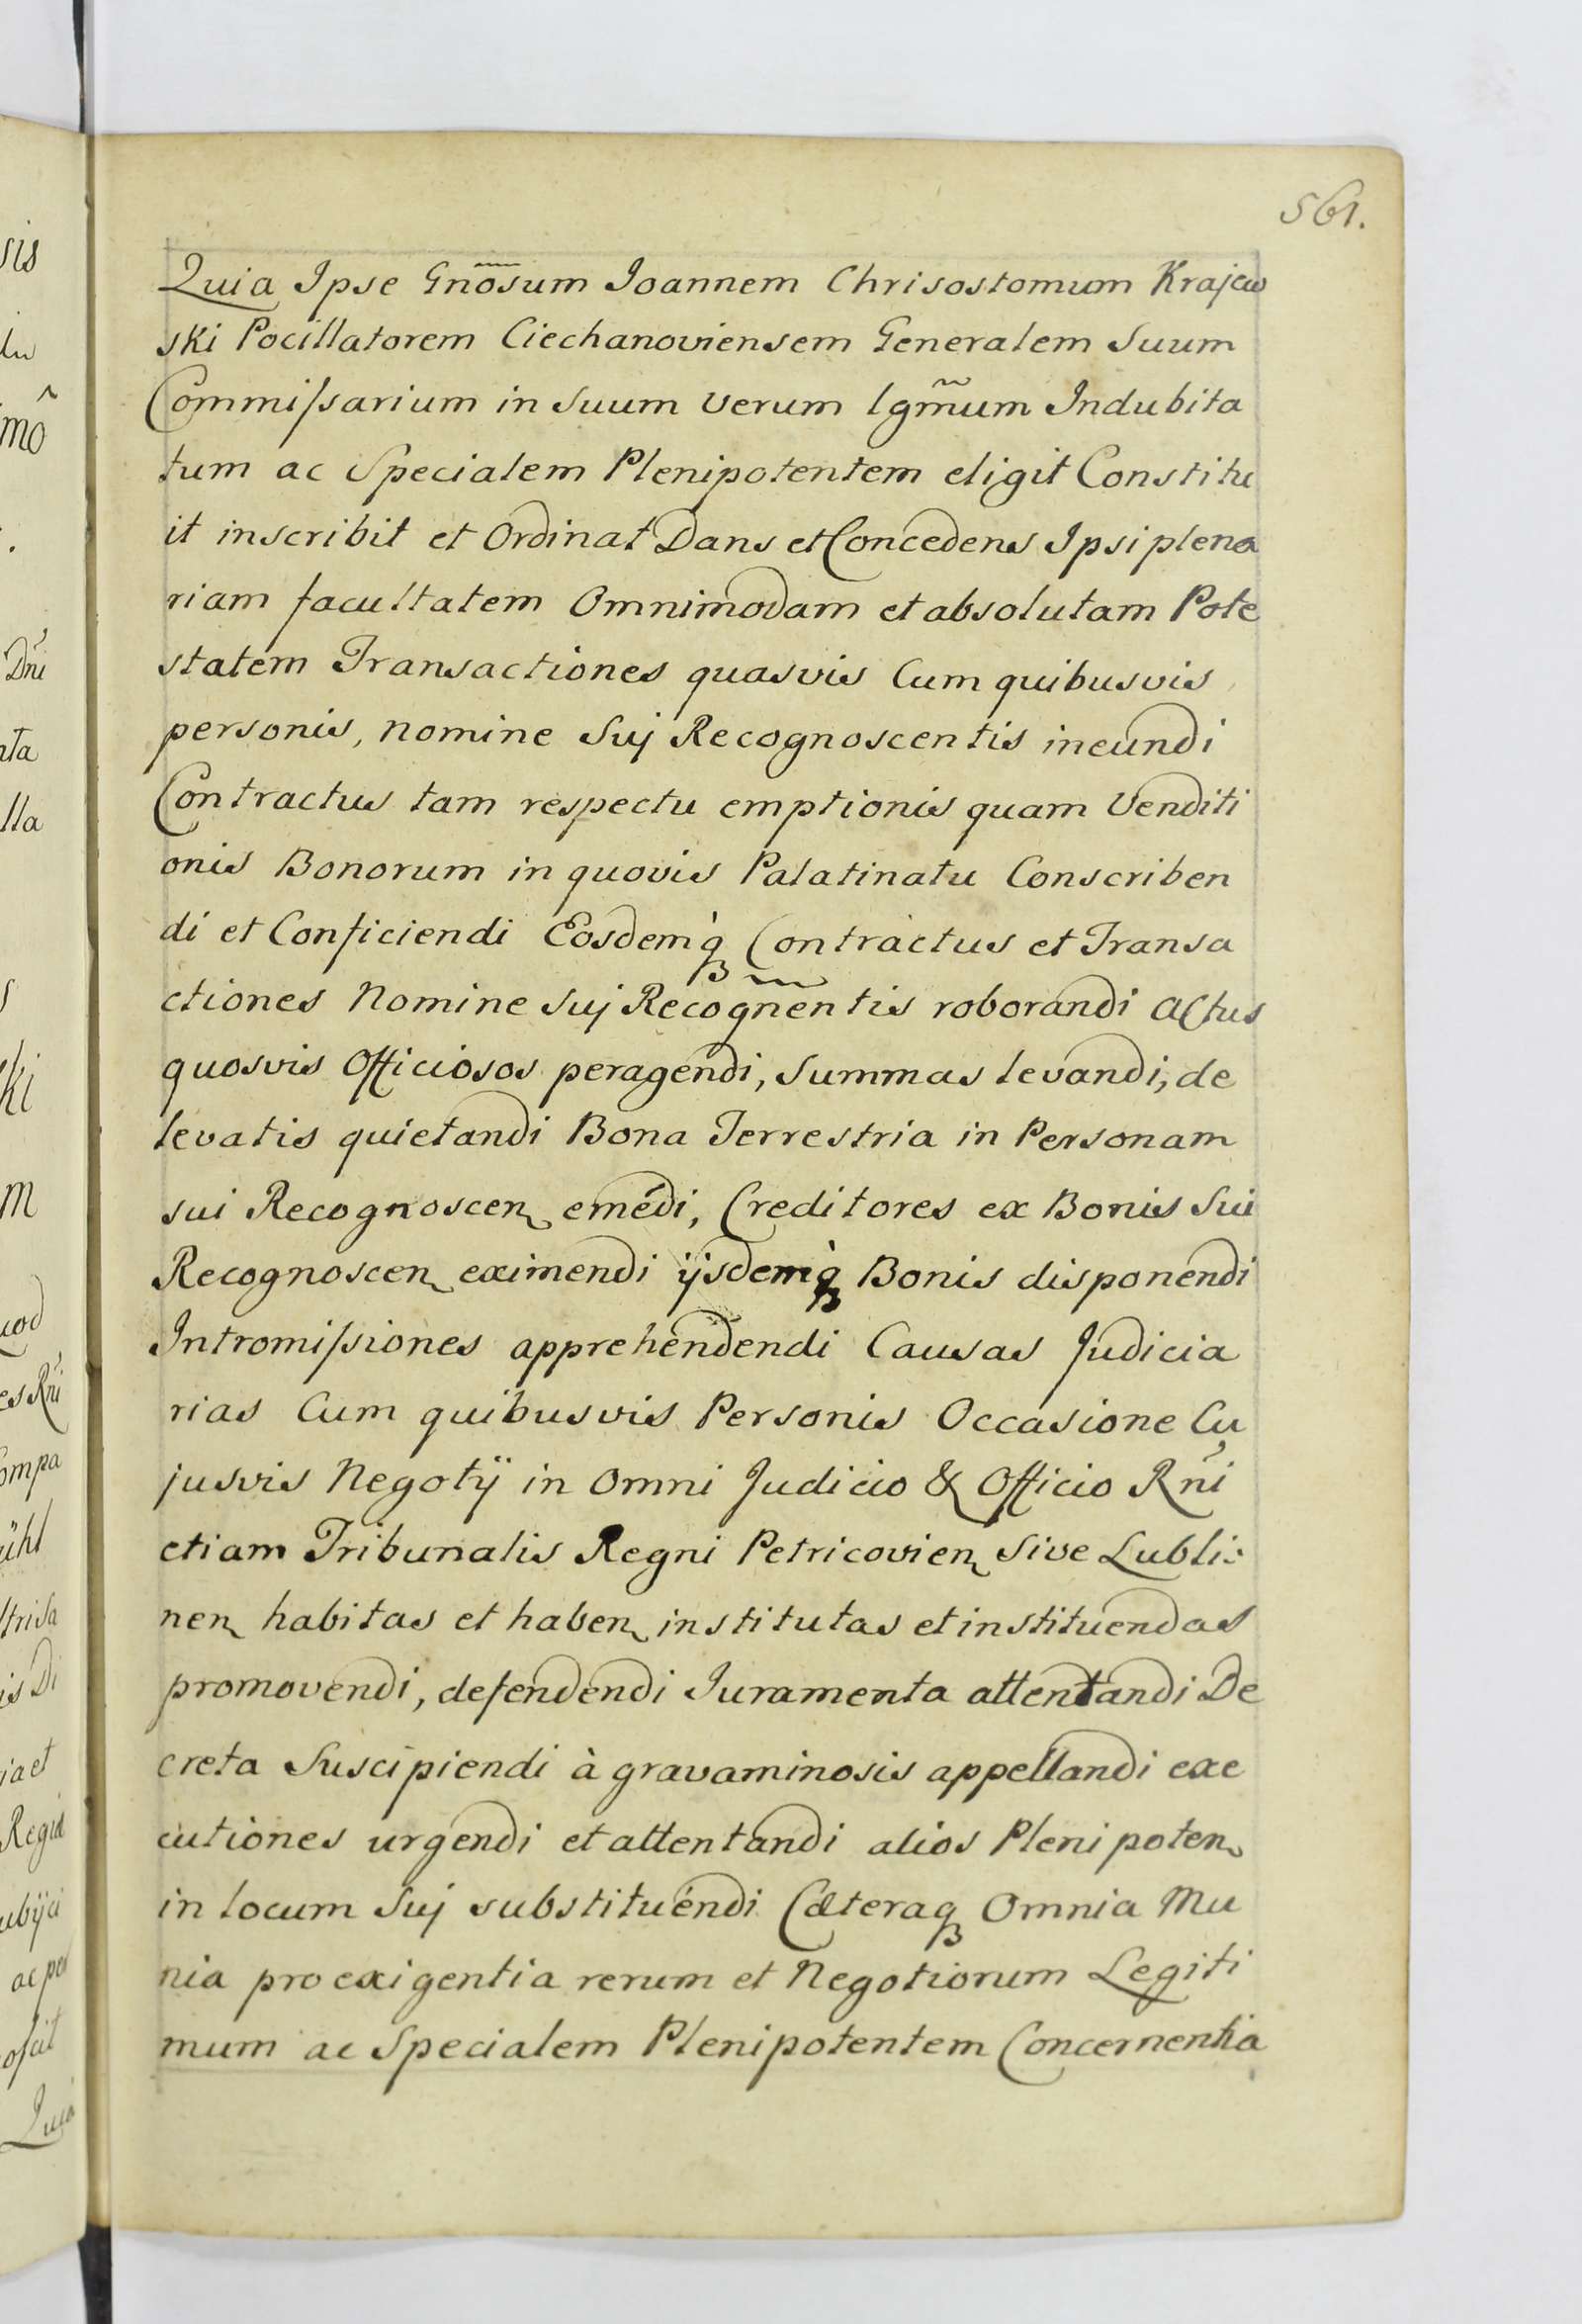 561.
Quia Ipse Gnosum Joannem Chrisostomum Krajew
ski Pocillatorem Ciechanoviensem Generalem Suum
Commissarium in Suum Verum lgmum Indubita
tum ac Specialem Plenipotentem eligit Constitu
it inscribit et Ordinat Dans et Concedens Ipsi plena
riam facultatem Omnimodam et absolutam Pote
statem Transactiones quasvis Cum quibusvis
personis, nomine Suj Recognoscentis ineundi
Contractus tam respectu emptionis quam Venditi
onis Bonorum in quovis Palatinatu Conscriben
di et Conficiendi Eosdemq Contractus et Transa
ctiones Nomine Suj Recognentis roborandi actus
quosvis Officiosos peragendi, Summas levandi, de
levatis quietandi Bona Terrestria in Personam
sui Recognoscen emédi, Creditores ex Bonis Sui
Recognoscen eximendi ijsdemq Bonis disponendi
Intromissiones apprehendendi Causas Judicia
rias Cum quibusvis Personis Occasione Cu
jusvis Negotij in Omni Judicio & Officio Rni
etiam Tribunalis Regni Petricovien Sive Lubli:
nen habitas et haben institutas et instituendas
promovendi, defendendi Juramenta attentandi De
creta Suscipiendi à gravaminosis appellandi exe
cutiones urgendi et attentandi alios Plenipoten
in locum Suj substituendi Cæteraq Omnia Mu
nia pro exigentia rerum et Negotiorum Legiti
mum ac Specialem Plenipotentem Concernentia